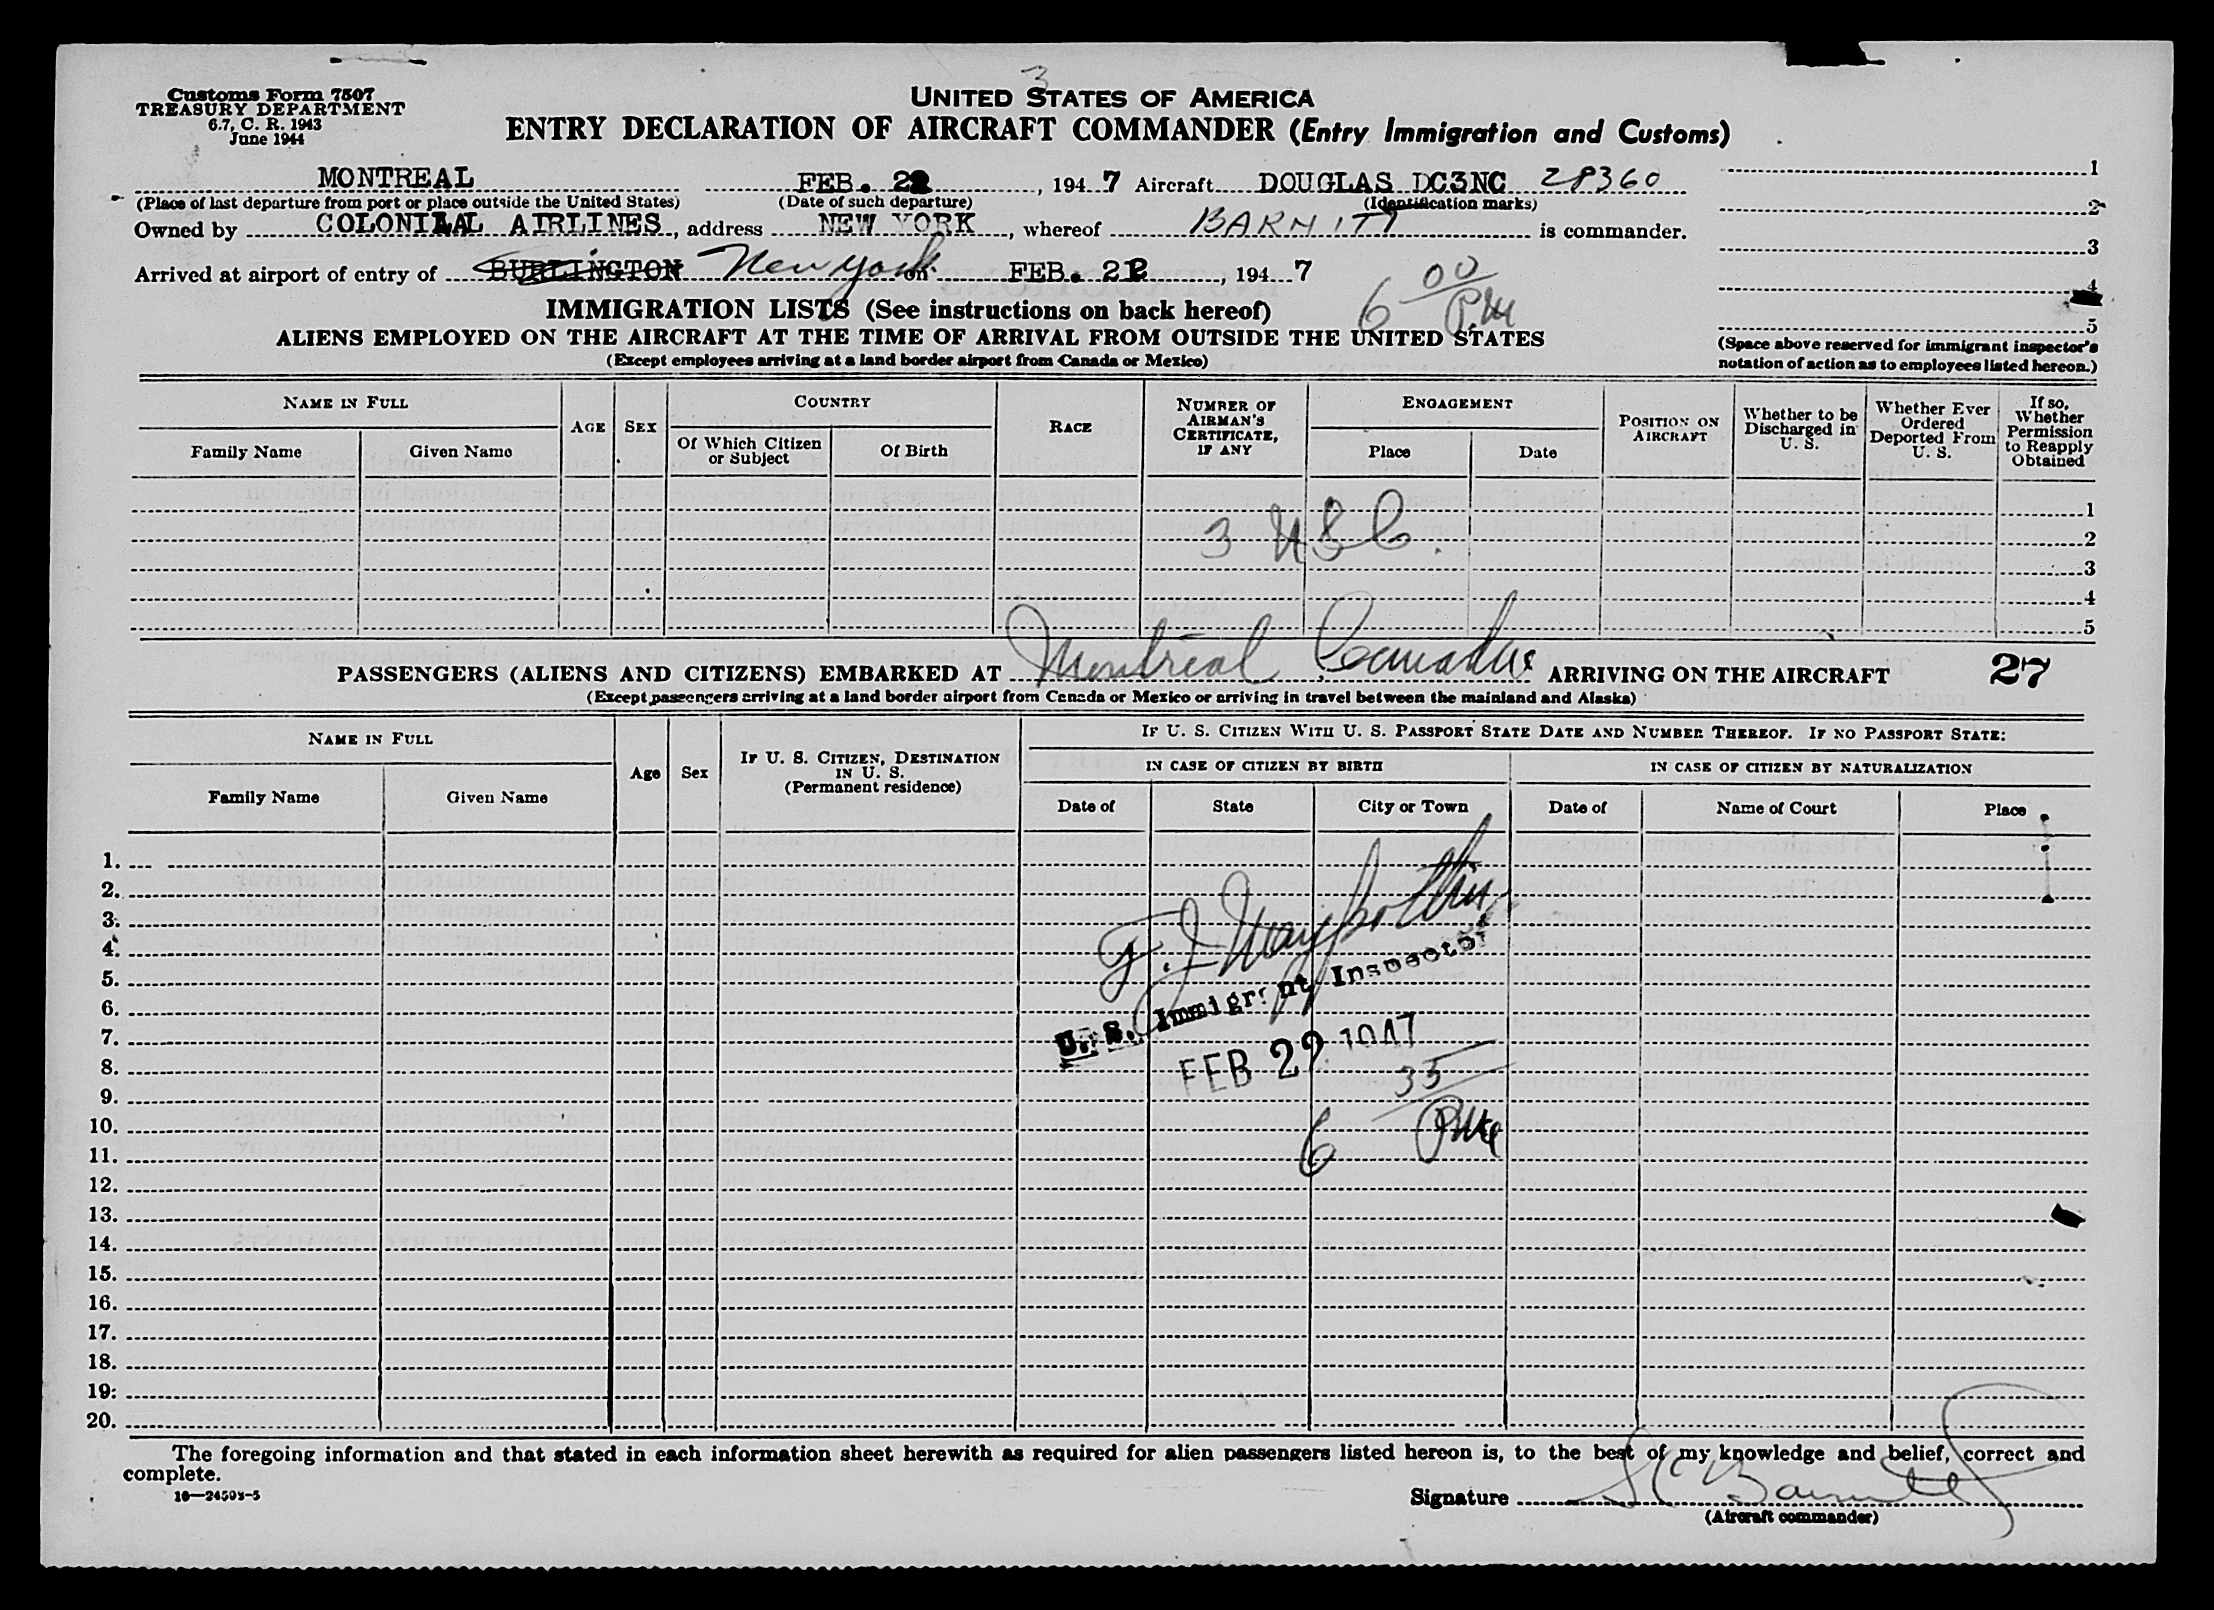 3
Customs Form 7507
TREASURY DEPARTMENT
6.7, C. R. 1943
June 1944
UNITED STATES OF AMERICA
ENTRY DECLARATION OF AIRCRAFT COMMANDER (Entry Immigration and Customs)
MONTREAL FEB. 22, 1947 Aircraft DOUGLAS DC3NC 28360
(Place of last departure from port or place outside the United States) (Date of such departure) (Identification marks)
Owned by COLONIAL AIRLINES, address NEW YORK, whereof BARNITT is commander.
Arrived at airport of entry of BURLINGTON New York on FEB. 22, 1947
6 00 PM
1
2
3
4
5
(Space above reserved for immigrant inspector's
notation of action as to employees listed hereon.)
IMMIGRATION LISTS (See instructions on back hereof)
ALIENS EMPLOYED ON THE AIRCRAFT AT THE TIME OF ARRIVAL FROM OUTSIDE THE UNITED STATES
(Except employees arriving at a land border airport from Canada or Mexico)
NAME IN FULL
Family Name
Given Name
AGE
SEX
COUNTRY
Of Which Citizen
or Subject
Of Birth
RACE
NUMBER OF
AIRMAN'S
CERTIFICATE,
IF ANY
ENGAGEMENT
Place
Date
POSITION ON
AIRCRAFT
Whether to be
Discharged in
U. S.
Whether Ever
Ordered
Deported From
U. S.
If so,
Whether
Permission
to Reapply
Obtained
1
2
3
4
5
3 USC.
PASSENGERS (ALIENS AND CITIZENS) EMBARKED AT Montreal, Canada ARRIVING ON THE AIRCRAFT 27
(Except passengers arriving at a land border airport from Canada or Mexico or arriving in travel between the mainland and Alaska)
NAME IN FULL
Family Name
Given Name
Age
Sex
IF U. S. CITIZEN, DESTINATION
IN U. S.
(Permanent residence)
IF U. S. CITIZEN WITH U. S. PASSPORT STATE DATE AND NUMBER THEREOF. IF NO PASSPORT STATE:
IN CASE OF CITIZEN BY BIRTH
Date of
State
City or Town
IN CASE OF CITIZEN BY NATURALIZATION
Date of
Name of Court
Place
1.
2.
3.
4.
5.
6.
7.
8.
9.
10.
11.
12.
13.
14.
15.
16.
17.
18.
19.
20.
U. S. Immigrant Inspector
FEB 22 1947
6 35 PM
The foregoing information and that stated in each information sheet herewith as required for alien passengers listed hereon is, to the best of my knowledge and belief, correct and
complete.
16—24593-5
Signature
(Aircraft commander)